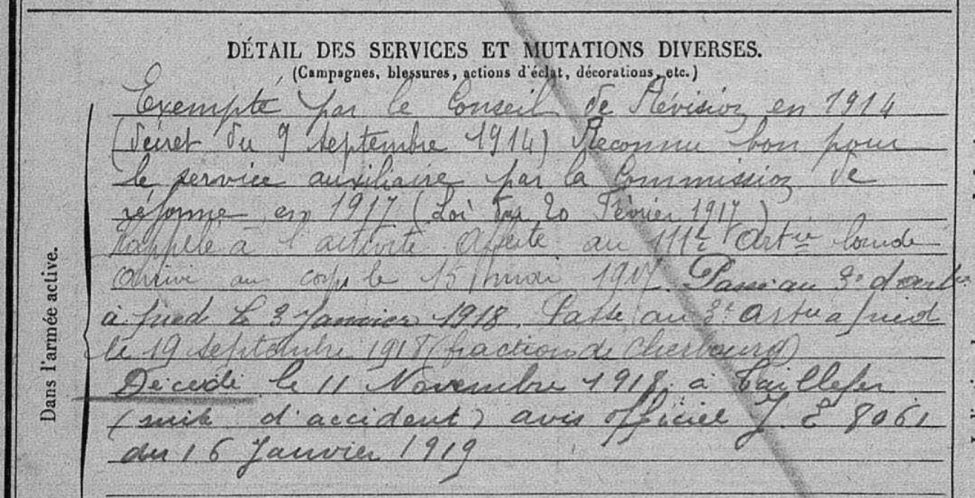 DÉTAIL DES SERVICES ET MUTATIONS DIVERSES.
(Campagnes, blessures, actions d'éclat, décorations, etc.)
Exempté par le Conseil de Révision en 1914
(décret du 9 septembre 1914) Reconnu bon pour
le service auxiliaire par la Commission de
réforme en 1917 (Loi du 20 Février 1917)
Rappelé à l'activité Affecté au 111e Artie lourde
Arrivé au corps le 15 mai 1917. Passé au 3e d'artie
à pied le 3 Janvier 1918. Passé au 3e Artie à pied
le 19 septembre 1918 (fraction de Cherbourg)
Décédé le 11 Novembre 1918 à Taillefer
(suite d'accident) avis officiel J. E 8061
du 16 Janvier 1919
Dans l'armée active.